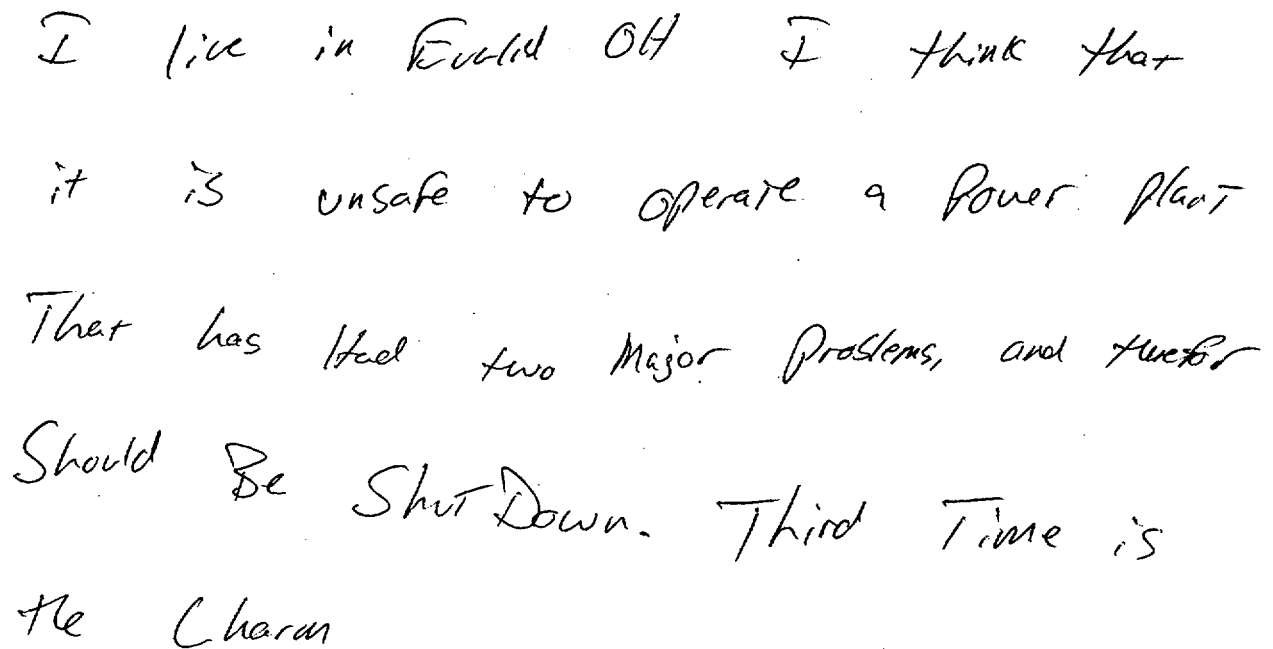 I live in Euclid OH I think that
it is unsafe to operate a Power plant
That has Had two Major Problems, and therefor
Should Be Shut Down. Third Time is
the Charm